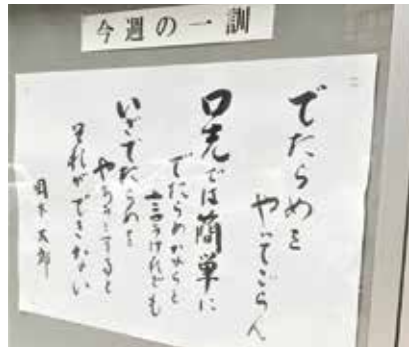 今週の一訓
でたらめを
やってごらん
口先では簡単に
でたらめならと
言うけれども
いざでたらめを
やろうとすると
それができない
岡本太郎